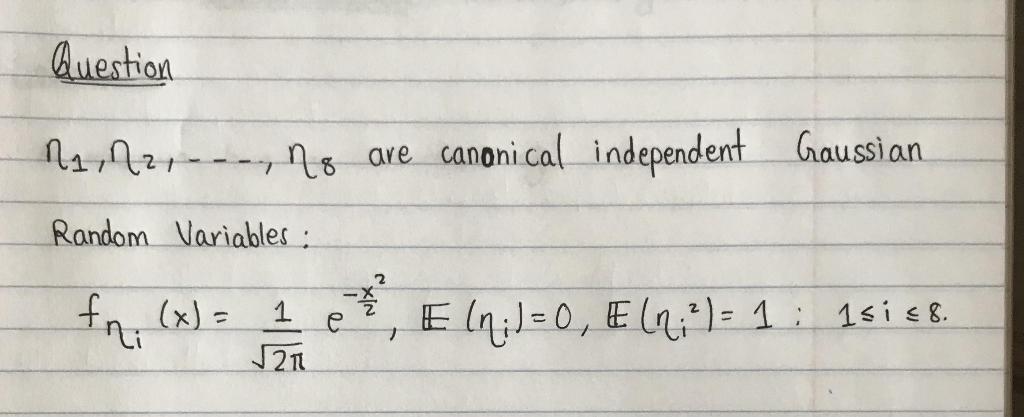 Question
η₁, η₂, ----, η₈ are canonical independent Gaussian
Random Variables :
f_{ηᵢ}(x) = \frac{1}{\sqrt{2π}} e^{-\frac{x^2}{2}}, 𝔼(ηᵢ)=0, 𝔼(ηᵢ²)= 1 : 1≤i≤8.